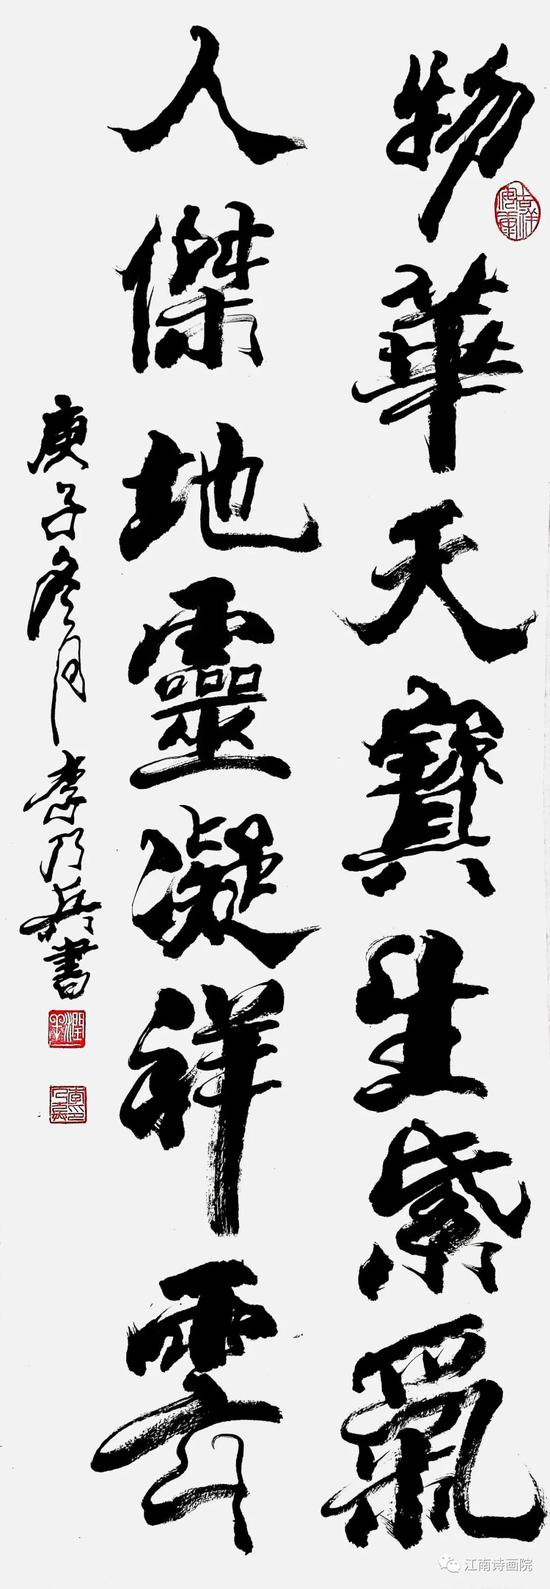 物華天寶生紫氣
人傑地靈凝祥雲
庚子冬月李乃兵書
江南诗画院